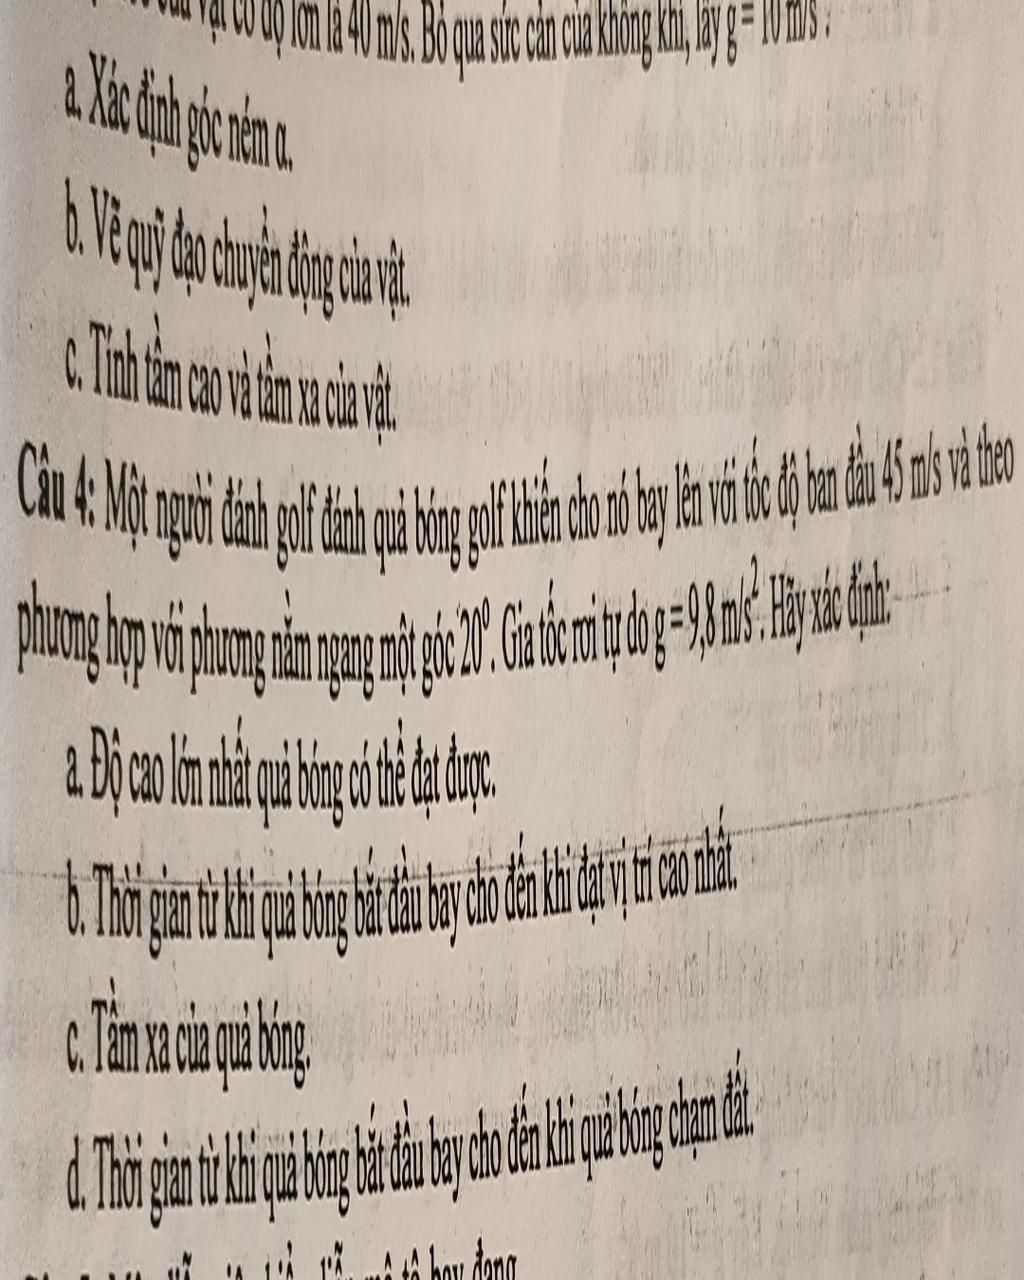 của vật có độ lớn là 40 m/s. Bỏ qua sức cản của không khí, lấy g = 10 m/s².
a. Xác định góc ném α.
b. Vẽ quỹ đạo chuyển động của vật.
c. Tính tầm cao và tầm xa của vật.
Câu 4: Một người đánh golf đánh quả bóng golf khiến cho nó bay lên với tốc độ ban đầu 45 m/s và theo
phương hợp với phương nằm ngang một góc 20⁰. Gia tốc rơi tự do g = 9,8 m/s². Hãy xác định:
a. Độ cao lớn nhất quả bóng có thể đạt được.
b. Thời gian từ khi quả bóng bắt đầu bay cho đến khi đạt vị trí cao nhất.
c. Tầm xa của quả bóng.
d. Thời gian từ khi quả bóng bắt đầu bay cho đến khi quả bóng chạm đất.
bay đang